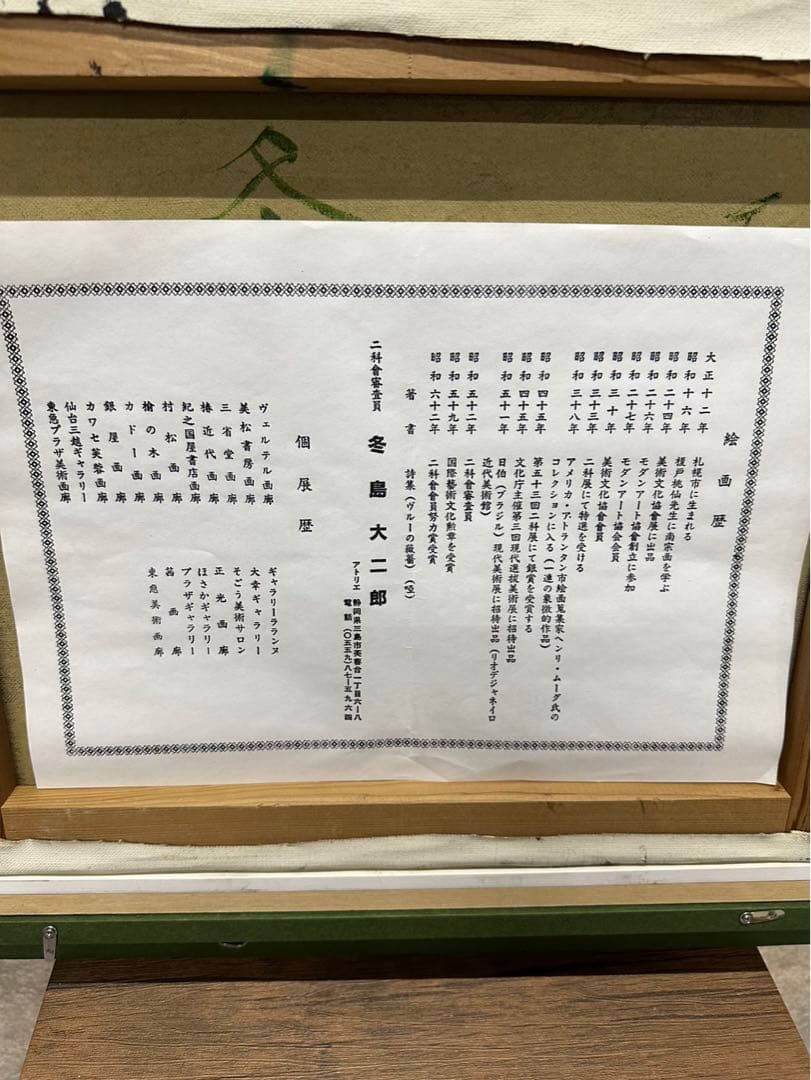 冬
絵画歴
大正十二年 札幌市に生まれる
昭和十六年 榎戸桃仙先生に南宗画を学ぶ
昭和二十四年 美術文化協會展に出品
昭和二六年 モダンアート協會創立に参加
昭和二十七年 モダンアート協会会員
昭和三十年 美術文化協會會員
昭和三十三年 二科展にて特選を受ける
昭和三十八年 アメリカ・アトランタン市絵画蒐集家ヘンリ・ムーグ氏の
コレクションに入る(一連の象徴的作品)
昭和四十五年 第五十三回二科展にて銀賞を受賞する
昭和四十五年 文化庁主催第三回現代選抜美術展に招待出品
昭和五十一年 日伯(ブラジル)現代美術展に招待出品(リオデジャネイロ
近代美術館)
昭和五十二年 二科會審査員
昭和五十九年 国際藝術文化勲章を受賞
昭和六十二年 二科會會員努力賞受賞
著書 詩集(ヴルーの薇薯)(啞)
二科會審査員 冬島大二郎
アトリエ 静岡県三島市芙蓉台一丁目六ー八
電話(〇五五九)八七ー五九六四
個展歴
ヴェルテル画廊
美松書房画廊
三省堂画廊
椿近代画廊
紀之国屋書店画廊
村松画廊
檜の木画廊
カドー画廊
銀屋画廊
カワセ芙蓉画廊
仙台三越ギャラリー
東急プラザ美術画廊
ギャラリーランヌ
大幸ギャラリー
そごう美術サロン
正光画廊
ほさかギャラリー
プラザギャラリー
茜画廊
東急美術画廊